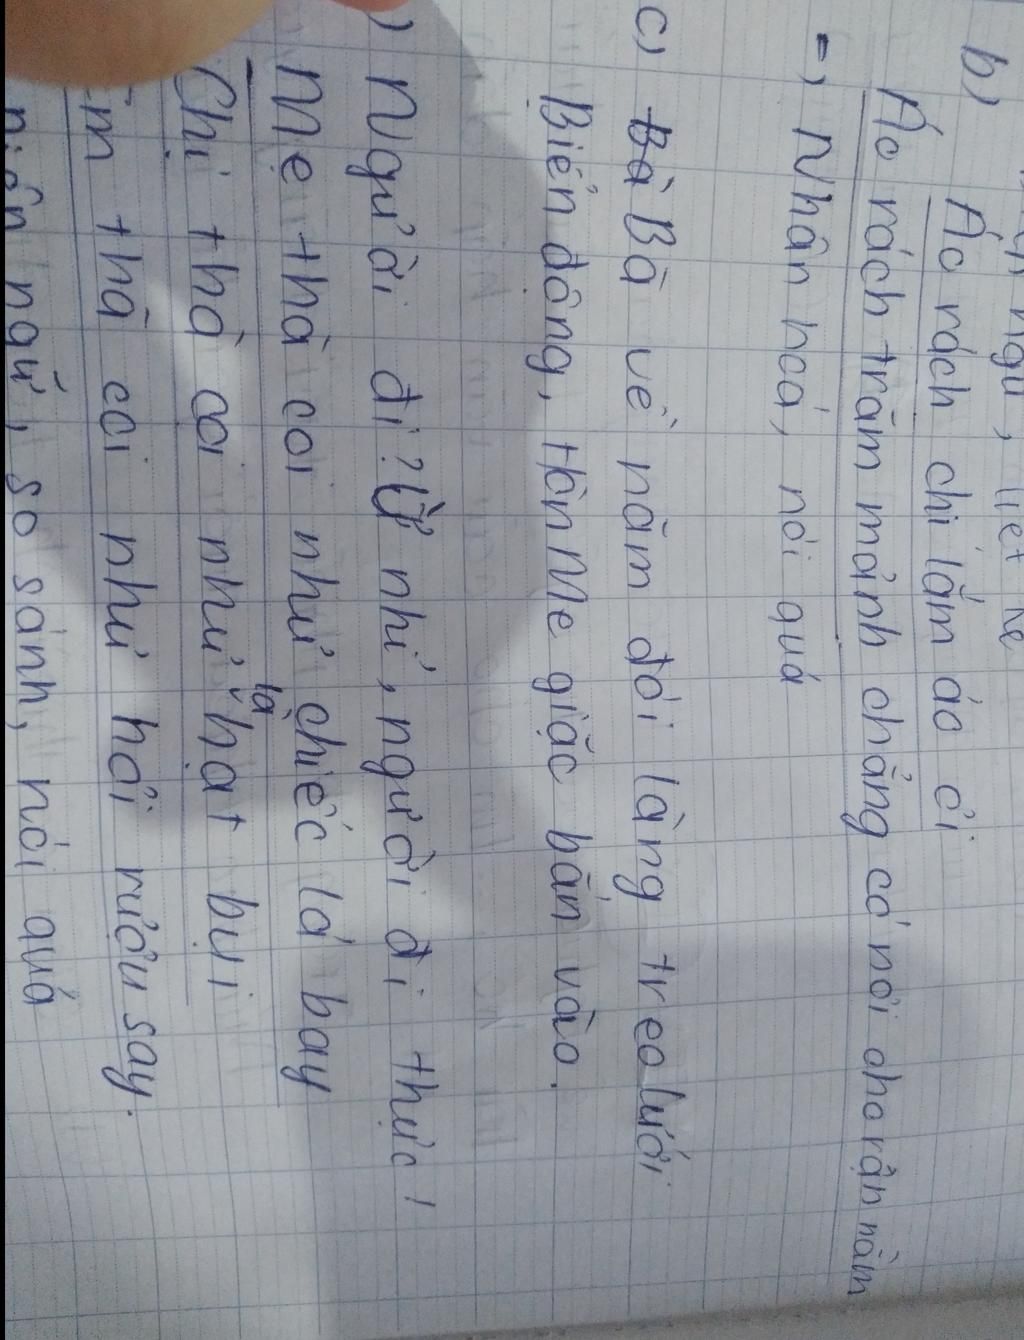 ngữ, liệt kê
b)
Áo rách chi lắm áo ơi
Áo rách trăm mảnh chẳng có nơi cho rận nằm
=) Nhân hoá, nói quá
c) Bà Bà về năm đói làng treo lưới
Biển động, Hòn Mê giặc bắn vào.
) Người đi? Ừ nhỉ, người đi thực!
Mẹ thà coi như chiếc lá bay
Chị thà coi như là hạt bụi
Em thà coi như hơi rượu say.
ngữ, so sánh, nói quá